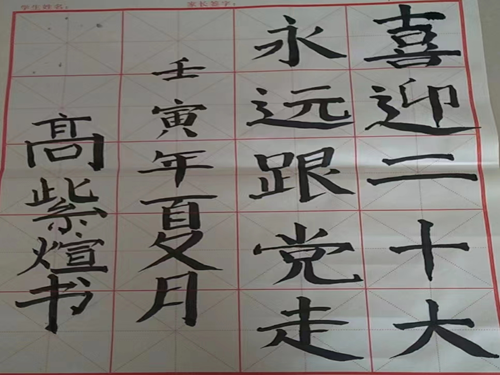 学生姓名:
家长签字:
喜迎二十大
永远跟党走
壬寅年夏月
高紫煊书